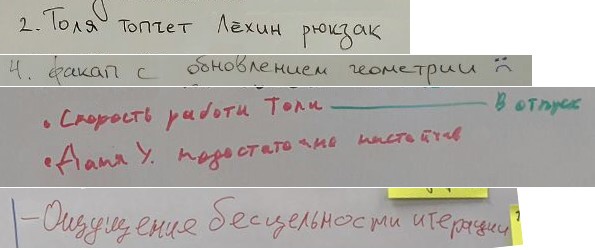 2. Толя топчет Лёхин рюкзак
4. факап с обновлением геометрии :(
• Скорость работы Толи — В отпуск
• Даня У. недостаточно настойчив
- Ощущение бесцельности итерации